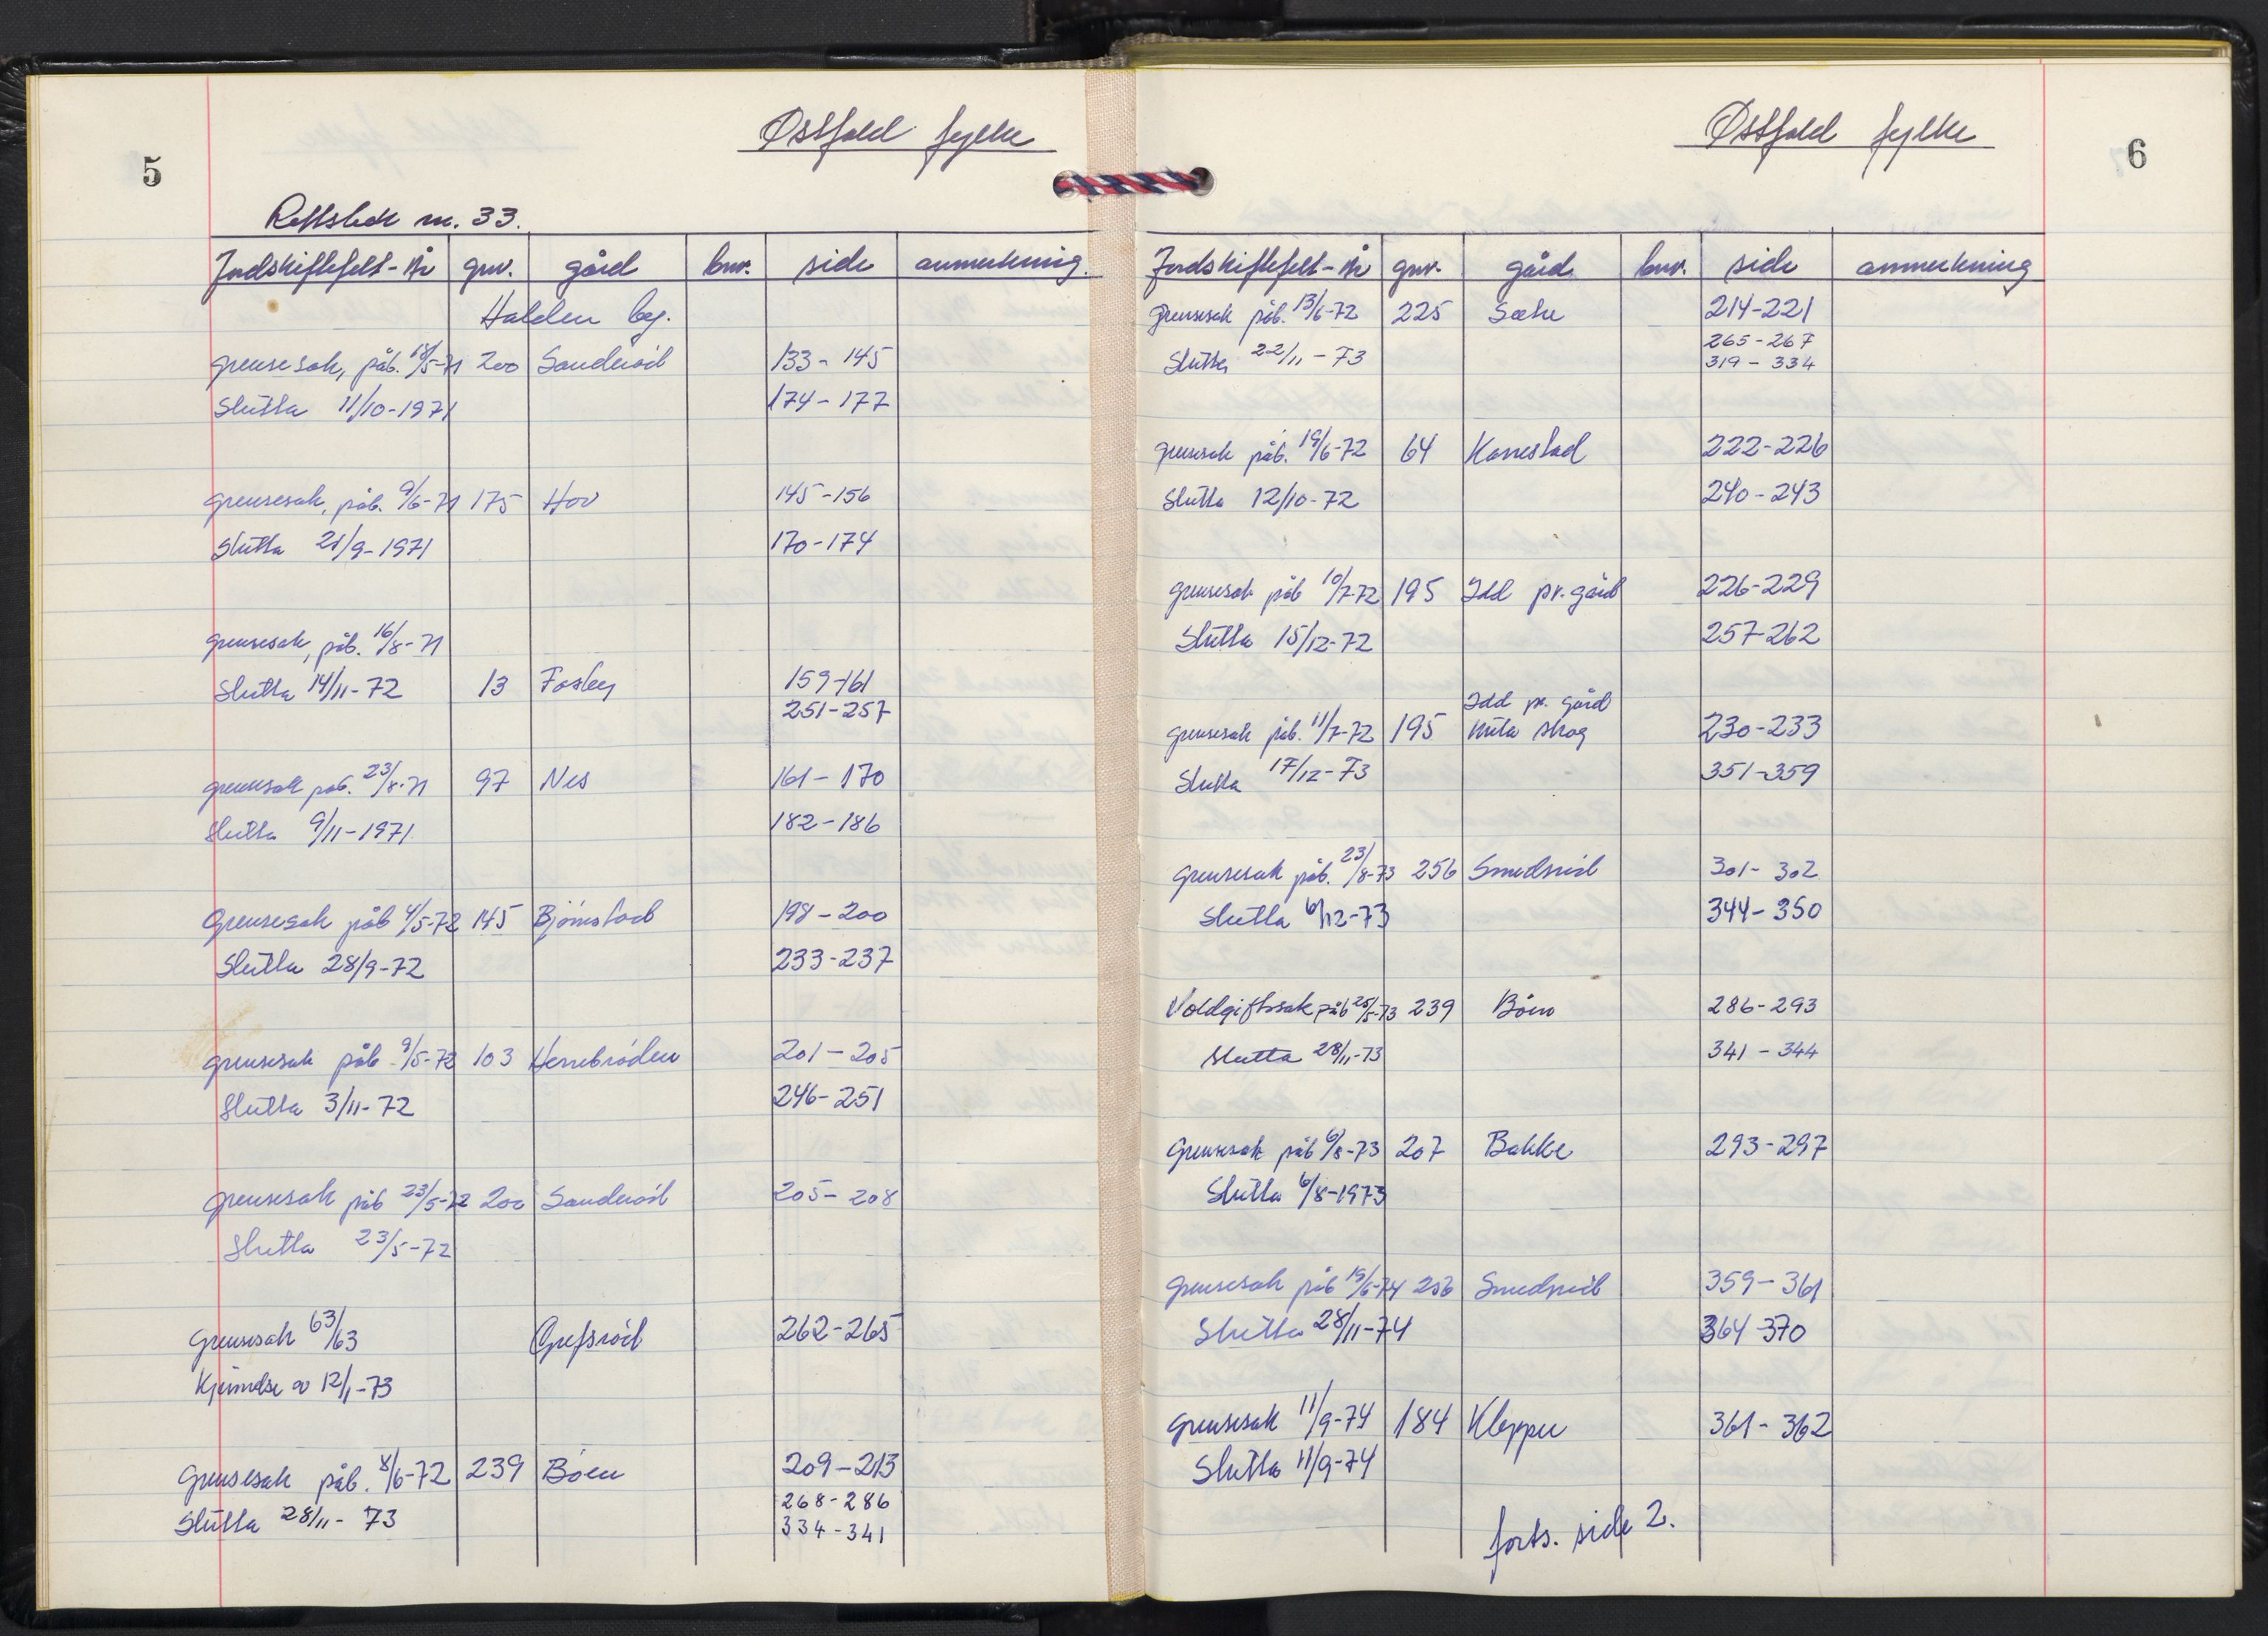 5
Østfold fylke
Rettsbok nr. 33.
Jordskiftefelt-Nr gnr. gård bnr. side anmerkning.
Halden by.
grensesak, påb. 18/5-71 200 Sanderöd 133-145
Slutta 11/10-1971 174-177
grensesak, påb. 9/6-71 175 Hov 145-156
Slutta 21/9-1971 170-174
grensesak, påb. 16/8-71
Slutta 14/11-72 13 Fosby 159-161
251-257
grensesak påb. 23/8-71 97 Nes 161-170
Slutta 9/11-1971 182-186
Grensesak påb 4/5-72 145 Bjørnstad 198-200
Slutta 28/9-72 233-237
grensesak påb 9/5-72 103 Herrebröden 201-205
Slutta 3/11-72 246-251
grensesak påb 23/5-72 200 Sanderöd 205-208
Slutta 23/5-72
Grensesak 63/63 Grefsröd 262-265
Kjennelse av 12/1-73
Grensesak påb. 8/6-72 239 Böen 209-213
Slutta 28/11-73 268-286
334-341
Østfold fylke
6
Jordskiftefelt-Nr gnr. gård bnr. side anmerkning
Grensesak påb. 13/6-72 225 Sæke 214-221
265-267
Slutta 22/11-73 319-334
grensesak påb. 19/6-72 64 Kornestad 222-226
Slutta 12/10-72 240-243
grensesak påb 10/7-72 195 Idd pr.gård 226-229
Slutta 15/12-72 257-262
Idd pr. gård
grensesak påb. 11/7-72 195 Mita skog 230-233
Slutta 17/12-73 351-359
Grensesak påb. 23/8-73 256 Smedsröd 301-302
Slutta 6/12-73 344-350
Voldgiftssak påb 25/5-73 239 Böen 286-293
Slutta 28/11-73 341-344
Grensesak påb 6/8-73 207 Bakke 293-297
Slutta 6/8-1973
Grensesak påb 19/6-74 256 Smedsröd 359-361
Slutta 28/11-74 364-370
Grensesak 11/9-74 184 Klepper 361-362
Slutta 11/9-74
forts. side 2.